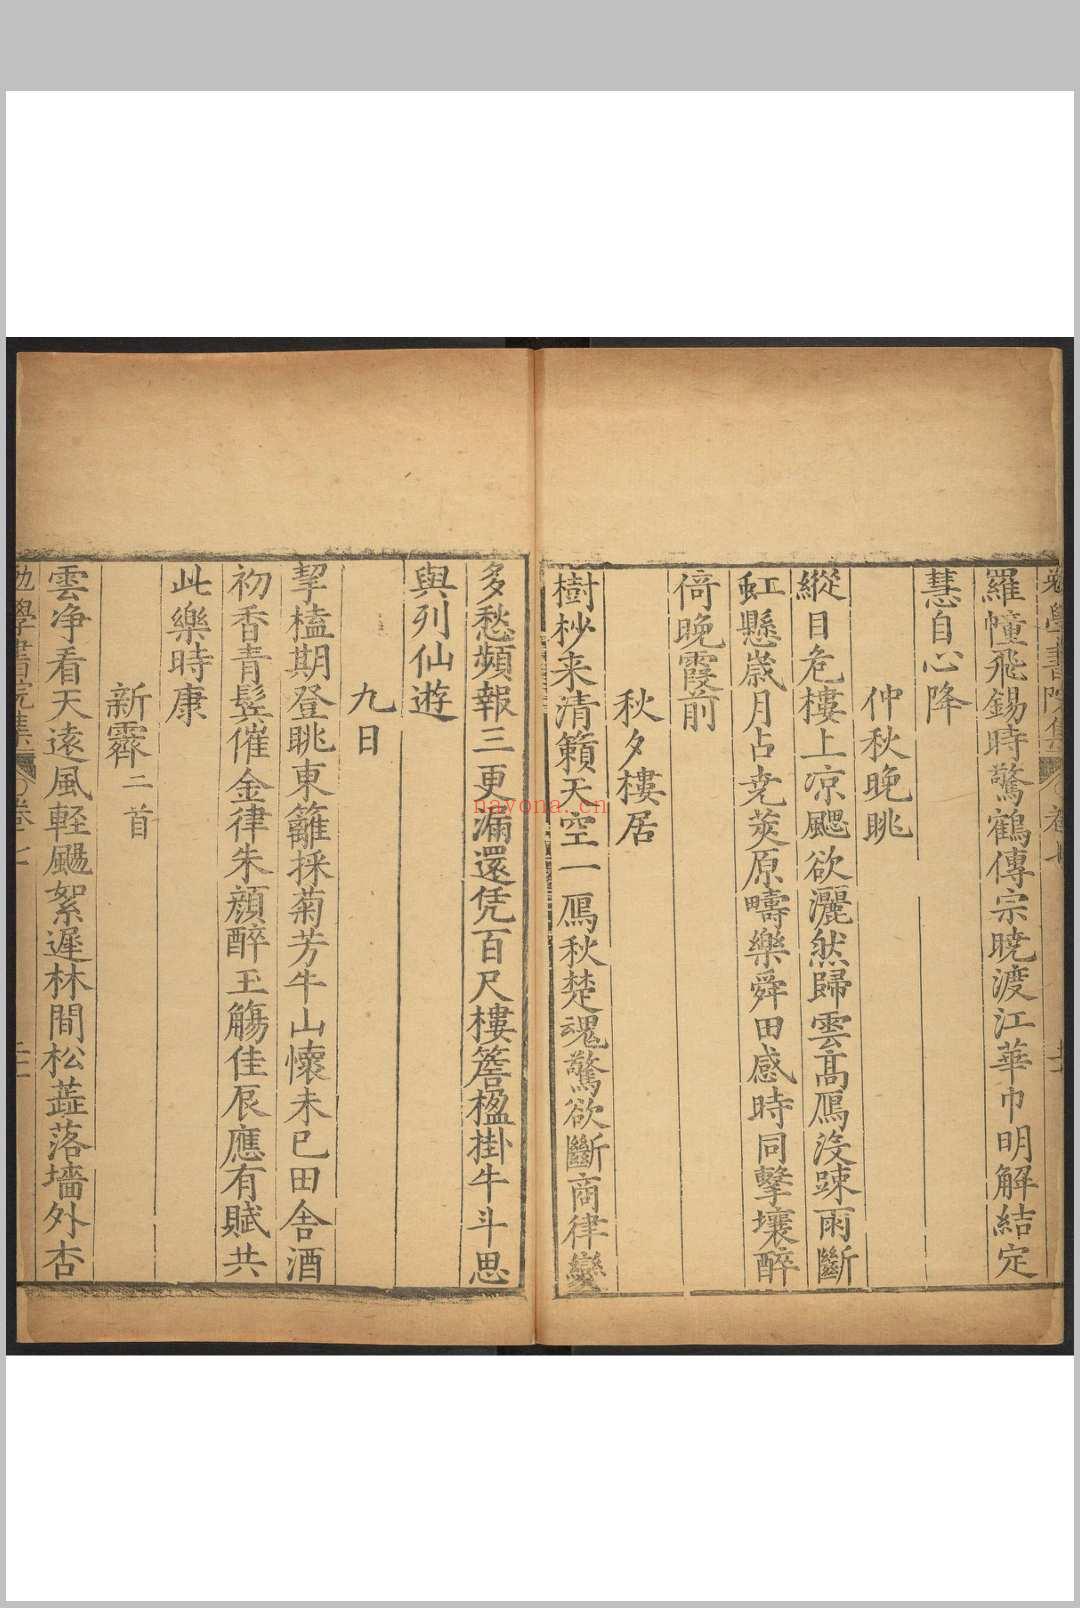 羅幢飛錫時驚鶴傳宗曉渡江華巾明解結定
慧自心降
仲秋晚眺
縱目危樓上凉颸欲灑然歸雲高鴈沒踈雨斷
虹懸歲月占堯蓂原疇樂舜田感時同擊壤醉
倚晚霞前
秋夕樓居
樹杪来清籟天空一鴈秋楚魂驚欲斷商律變
多愁頻報三更漏還凭百尺樓簷楹掛牛斗思
與列仙遊
九日
挈榼期登眺東籬採菊芳牛山懷未已田舍酒
初香青鬂催金律朱顔醉玉觴佳辰應有賦共
此樂時康
新霽二首
雲净看天遠風輕颺絮遲林間松蕋落墻外杏
勉學書院集 卷七
nayona.cn